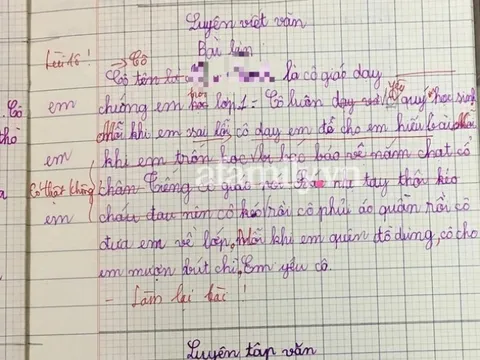 Luyện viết văn
Bài làm
Lùi lề! Cô
Cô tên là là cô giáo dạy
Cô em chúng em học lớp 1 = Cô luôn dạy và yêu quý học sinh
thò Mỗi khi em sai lỗi cô dạy em để cho em hiểu bài
em khi em trốn học bác bảo vệ nắm chặt cổ
Có thật không chân Tiếng cô giáo tay thôi kéo
em cháu đau nên cô kéo rồi cô phủi áo quần rồi cô
đưa em về lớp, Mỗi khi em quên đồ dùng, cô cho
em mượn bút chì, Em yêu cô.
- Làm lại bài!
Luyện tập văn
afamily.vn